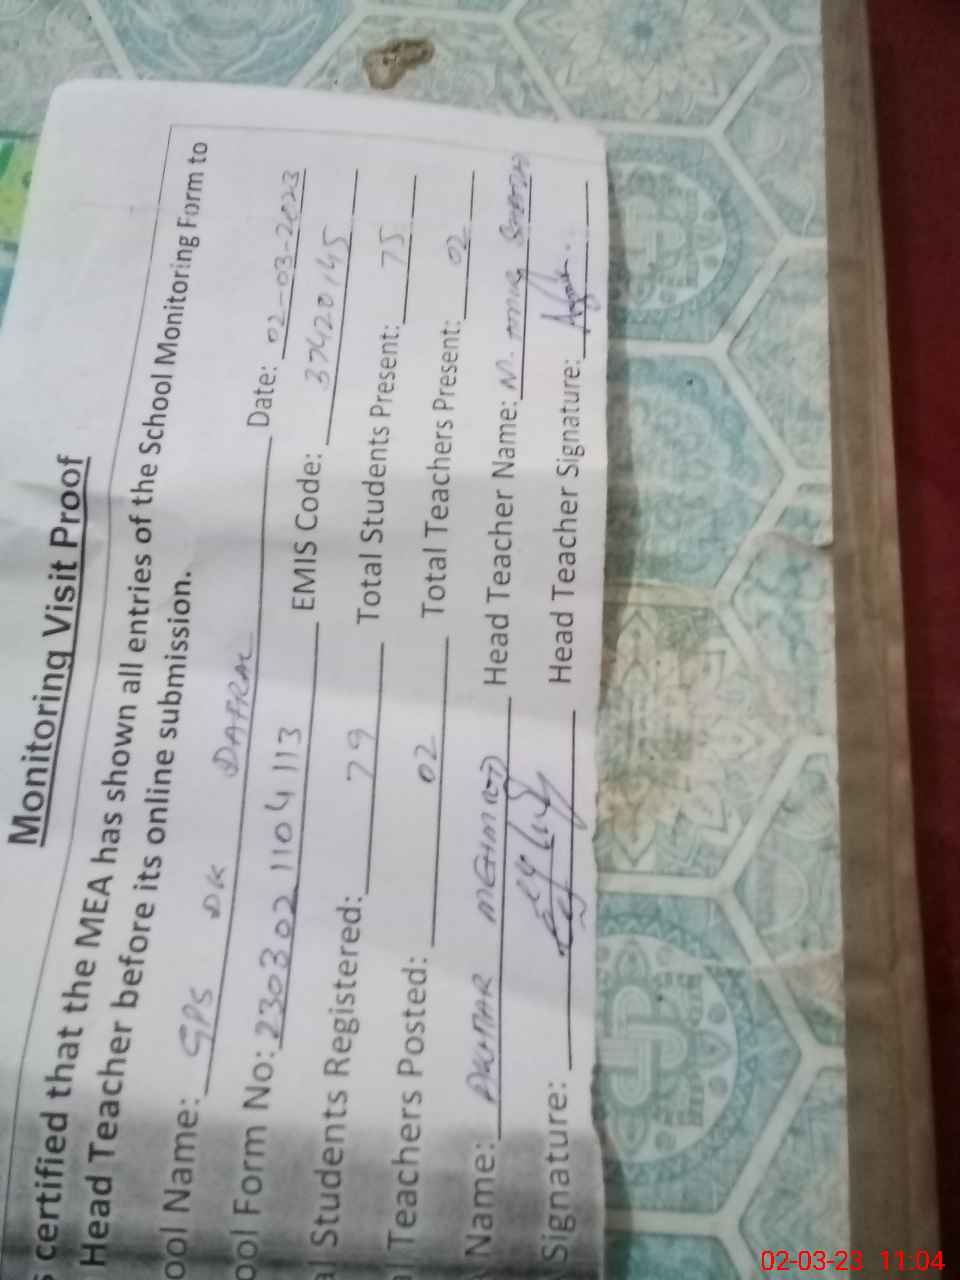 Monitoring Visit Proof
s certified that the MEA has shown all entries of the School Monitoring Form to
Head Teacher before its online submission.
ool Name: GPS DK DAFRAL Date: 02-03-2023
ool Form No: 230302 1104113 EMIS Code: 37420145
al Students Registered: 79 Total Students Present: 75
Teachers Posted: 02 Total Teachers Present: 02
Name: AKHTAR MEHMOOD Head Teacher Name: M.
Signature: Head Teacher Signature:
02-03-23 11:04